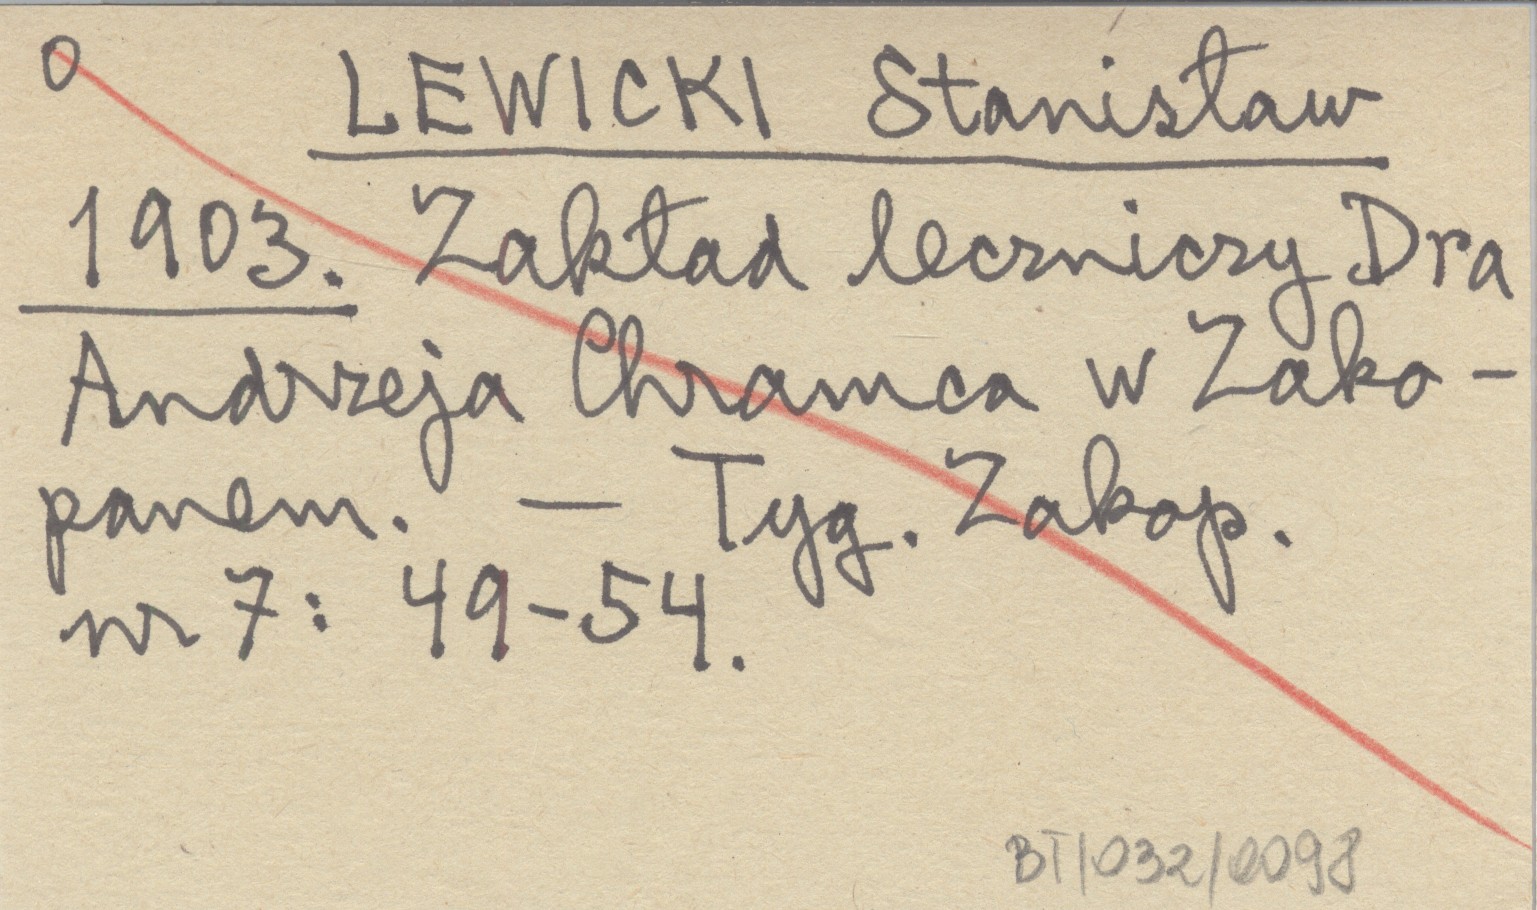 O
LEWICKI Stanisław
1903. Zakład leczniczy Dra
Andrzeja Chramca w Zako-
panem. — Tyg. Zakop.
nr 7: 49-54.
BT/032/0098